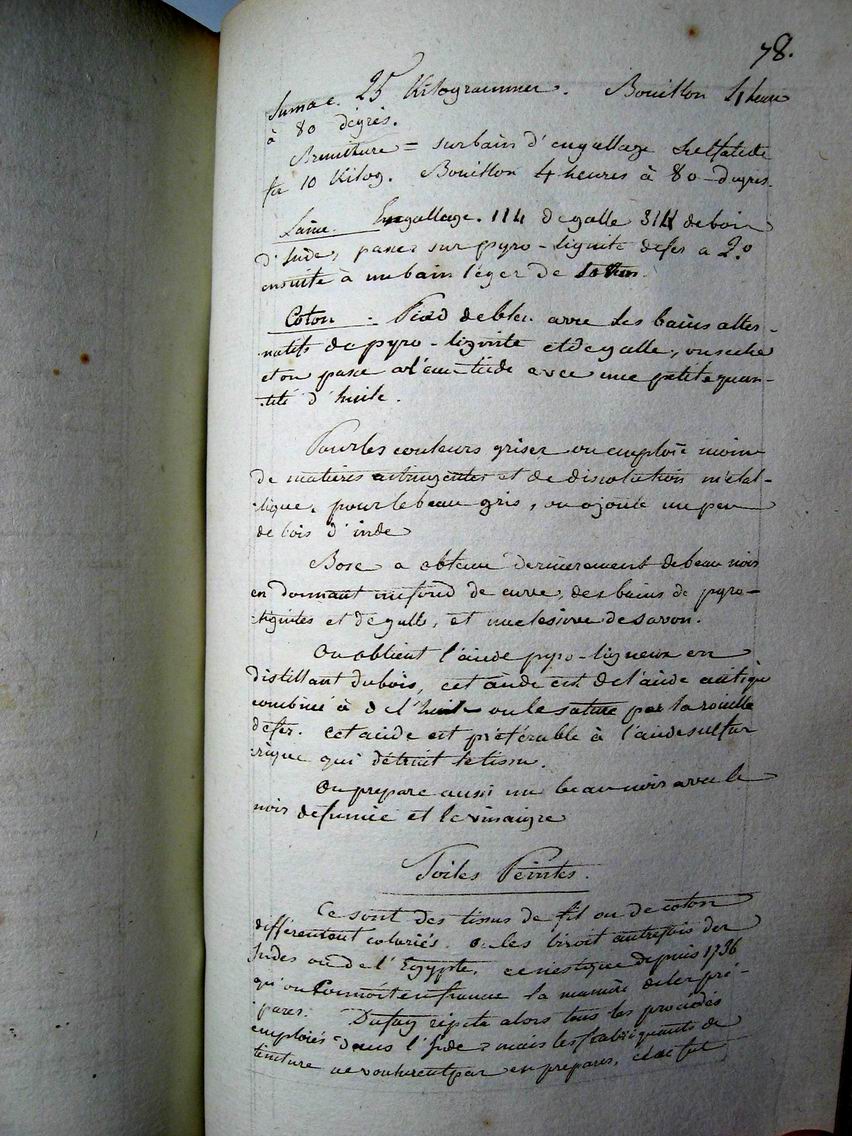 78.
Sumac. 25 Kilogrammes. Bouillon 4 heures
à 80 dégrés.
Bruniture = sur bain d'engallage sulfate de
fer 10 Kilog. Bouillon 4 heures à 80 degrés.
Laine. Engallage. 1/4 de galle 3/4 de bois
d'Inde, passer sur pyro-lignite de fer a 2.°
ensuite à un bain léger de
Coton. Pied de bleu avec des bains alter-
natifs de pyro-lignite et de galle, on seche
et on passe à l'eau tiede avec une petite quan-
tité d'huile.
Pour les couleurs grises on emploie moins
de matieres astringentes et de dissolution métal-
lique, pour le beau gris, on ajoute un peu
de bois d'inde
Bosc a obtenu dernierement de beau noir
en donnant un fond de cuve, des bains de pyro-
lignites et de galle, et une lessive de savon.
On obtient l'acide pyro-ligneux en
distillant du bois, cet acide est de l'acide acétique
combiné à de l'huile on le sature par la rouille
de fer. cet acide est préférable à l'acide sulfu
rique qui détruit le tissu.
On prepare aussi un beau noir avec le
noir de fumée et le vinaigre
Toiles Peintes.
Ce sont des tissus de fil ou de coton
différentent coloriés. on les tiroit autrefois des
Indes ou de l'Egypte. ce n'est que depuis 1736
qu'on connoit en france la maniere de les pré-
parer. Dufay répéta alors tous les procédés
emploiés dans l'Inde; mais les fabriquants de
teinture ne voulurent pas en préparer, ce ne fut